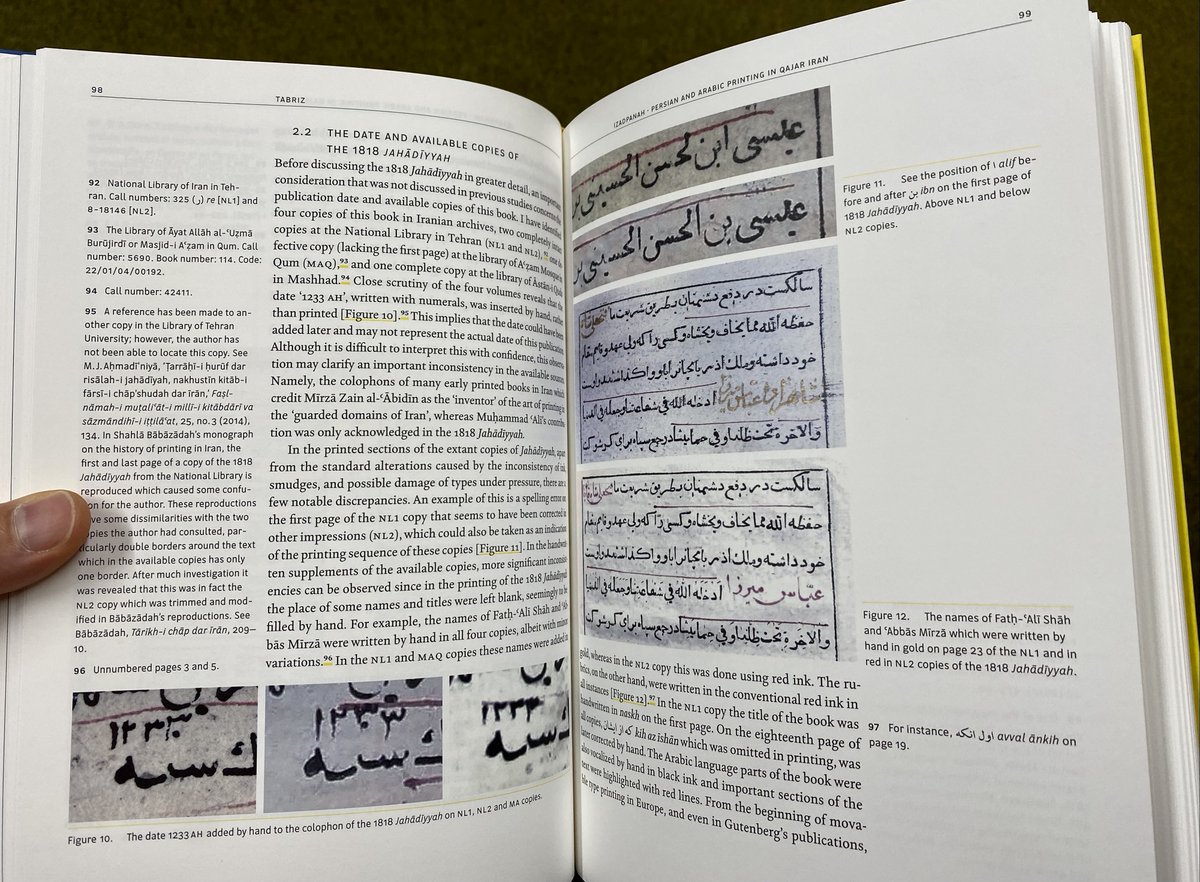 98
TABRIZ
2.2 THE DATE AND AVAILABLE COPIES OF
THE 1818 JAHĀDĪYYAH
Before discussing the 1818 Jahādiyyah in greater detail, an important
consideration that was not discussed in previous studies concerns the
publication date and available copies of this book. I have identified
four copies of this book in Iranian archives, two completely intact
copies at the National Library in Tehran (NL1 and NL2),92 one de-
fective copy (lacking the first page) at the library of Aʿẓam Mosque in
Qum (MAQ),93 and one complete copy at the library of Āstān-i Quds
in Mashhad.94 Close scrutiny of the four volumes reveals that the
date ‘1233 AH’, written with numerals, was inserted by hand, rather
than printed [Figure 10].95 This implies that the date could have been
added later and may not represent the actual date of this publication.
Although it is difficult to interpret this with confidence, this observa-
tion may clarify an important inconsistency in the available sources.
Namely, the colophons of many early printed books in Iran which
credit Mīrzā Zain al-ʿĀbidīn as the ‘inventor’ of the art of printing in
the ‘guarded domains of Iran’, whereas Muḥammad ʿAlī’s contribu-
tion was only acknowledged in the 1818 Jahādiyyah.
In the printed sections of the extant copies of Jahādiyyah, apart
from the standard alterations caused by the inconsistency of ink,
smudges, and possible damage of types under pressure, there are a
few notable discrepancies. An example of this is a spelling error on
the first page of the NL1 copy that seems to have been corrected in
other impressions (NL2), which could also be taken as an indication
of the printing sequence of these copies [Figure 11]. In the handwrit-
ten supplements of the available copies, more significant inconsist-
encies can be observed since in the printing of the 1818 Jahādiyyah
the place of some names and titles were left blank, seemingly to be
filled by hand. For example, the names of Fatḥ-ʿAlī Shāh and ʿAb-
bās Mīrzā were written by hand in all four copies, albeit with minor
variations.96 In the NL1 and MAQ copies these names were added in
92 National Library of Iran in Teh-
ran. Call numbers: 325 (ر) re [NL1] and
8-18146 [NL2].
93 The Library of Āyat Allāh al-ʿUẓmā
Burūjirdī or Masjid-i Aʿẓam in Qum. Call
number: 5690. Book number: 114. Code:
22/01/04/00192.
94 Call number: 42411.
95 A reference has been made to an-
other copy in the Library of Tehran
University; however, the author has
not been able to locate this copy. See
M.J. Aḥmadīʾniyā, ‘Ṭarrāḥī-i ḥurūf dar
risālah-i jahādīyah, nakhustīn kitāb-i
fārsī-i chāpʾshudah dar īrān,’ Faṣl-
nāmah-i muṭāliʿāt-i millī-i kitābdārī va
sāzmāndihī-i iṭṭilāʿāt, 25, no. 3 (2014),
134. In Shahlā Bābāzādah’s monograph
on the history of printing in Iran, the
first and last page of a copy of the 1818
Jahādiyyah from the National Library is
reproduced which caused some confu-
sion for the author. These reproductions
have some dissimilarities with the two
copies the author had consulted, par-
ticularly double borders around the text
which in the available copies has only
one border. After much investigation it
was revealed that this was in fact the
NL2 copy which was trimmed and mod-
ified in Bābāzādah’s reproductions. See
Bābāzādah, Tārikh-i chāp dar īrān, 209–
10.
96 Unnumbered pages 3 and 5.
۱۲۳۳
۱۲۳۳
۱۲۳۳
Figure 10. The date 1233 AH added by hand to the colophon of the 1818 Jahādiyyah on NL1, NL2 and MA copies.
99
IZADPANAH · PERSIAN AND ARABIC PRINTING IN QAJAR IRAN
عیسی ابن لحسن الحسینی
عیسی بن الحسن الحسینی
Figure 11. See the position of ا alif be-
fore and after بن ibn on the first page of
1818 Jahādiyyah. Above NL1 and below
NL2 copies.
سالکست در دفع دشمنان بطریق شریعت ما
حفظه الله مما یخاف ویخشاه وکسی را که ولی عهد و قایم مقام
خود داشته و ملک اذربایجانرا باو واکذاشته
ادخله الله فی شفاعتنا وجعله فی الدنیا
والاخرة تحت ظلنا و فی حمایتنا در جمع سپاه برای
سالکست در دفع دشمنان بطریق شریعت ما
حفظه الله مما یخاف ویخشاه وکسی را که ولی عهد و قایم مقام
خود داشته و ملک اذربایجانرا باو واکذاشته
عباس میرزا ادخله الله فی شفاعتنا وجعله فی الدنیا
والاخرة تحت ظلنا و فی حمایتنا در جمع سپاه برای
Figure 12. The names of Fatḥ-ʿAlī Shāh
and ʿAbbās Mīrzā which were written by
hand in gold on page 23 of the NL1 and in
red in NL2 copies of the 1818 Jahādiyyah.
gold, whereas in the NL2 copy this was done using red ink. The ru-
brics, on the other hand, were written in the conventional red ink in
all instances [Figure 12].97 In the NL1 copy the title of the book was
handwritten in naskh on the first page. On the eighteenth page of
all copies, که از ایشان kih az īshān which was omitted in printing, was
later corrected by hand. The Arabic language parts of the book were
also vocalized by hand in black ink and important sections of the
text were highlighted with red lines. From the beginning of mova-
ble type printing in Europe, and even in Gutenberg’s publications,
97 For instance, اول انکه avval ānkih on
page 19.